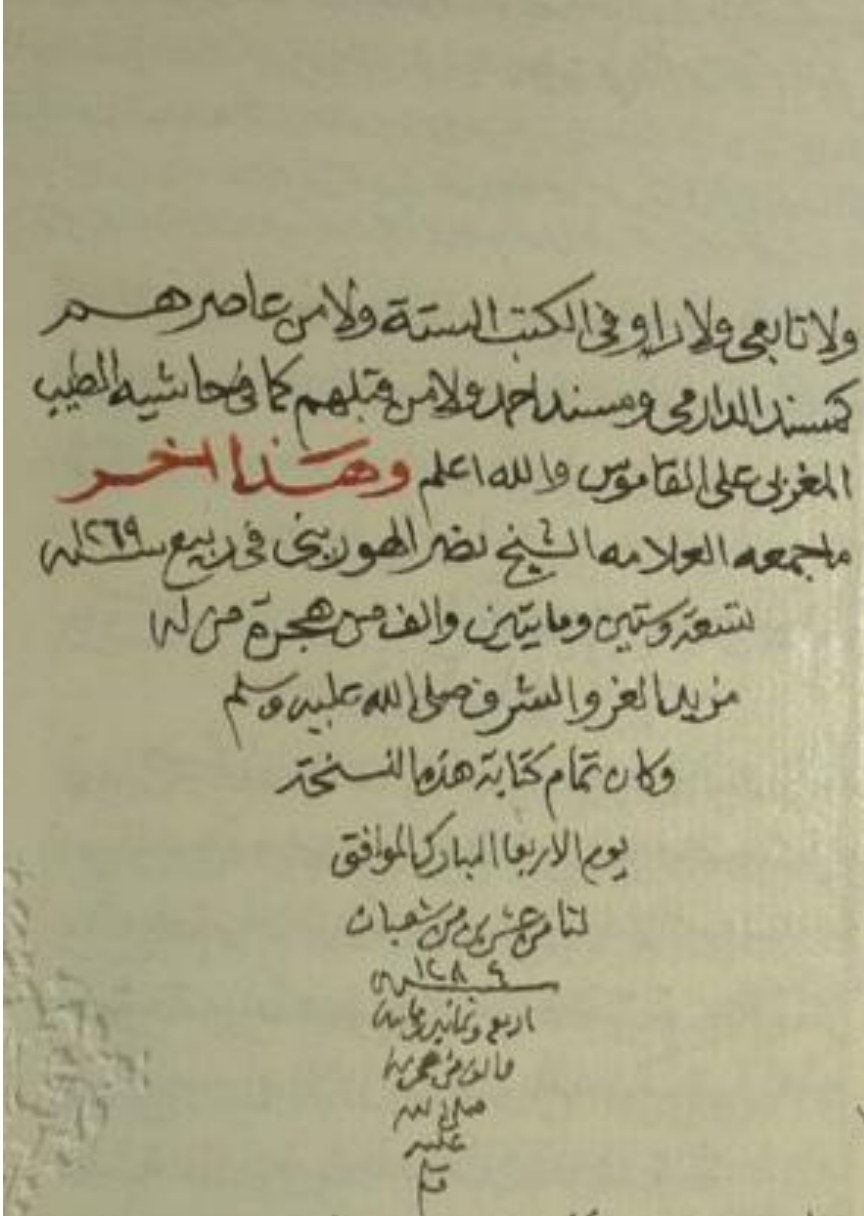 ولا تابعى ولا راو فى الكتب الستة ولا من عاصرهم
كمسند الدارمى ومسند احمد ولا من قبلهم كما فى حاشيه الطيب
المغربى على القاموس والله اعلم وهذا اخر
ما جمعه العلامه الشيخ نصر الهورينى فى ربيع سنه ١٢٦٩
تسعة وستين ومايتين والف من هجرة من له
مزيد العز والشرف صلى الله عليه وسلم
وكان تمام كتابة هذه النسخة
يوم الاربعا المبارك الموافق
لثامن عشرين من شعبان
سنه ١٢٨٤
اربع وثمانين ومايه
والف من هجرته
صلى الله
عليه